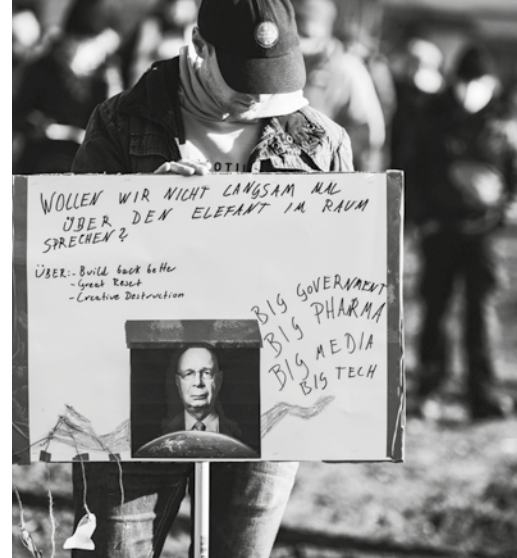 WOLLEN WIR NICHT LANGSAM MAL
ÜBER DEN ELEFANT IM RAUM
SPRECHEN?
ÜBER:- Build back better
- Great Reset
- Creative Destruction
BIG GOVERNMENT
BIG PHARMA
BIG MEDIA
BIG TECH